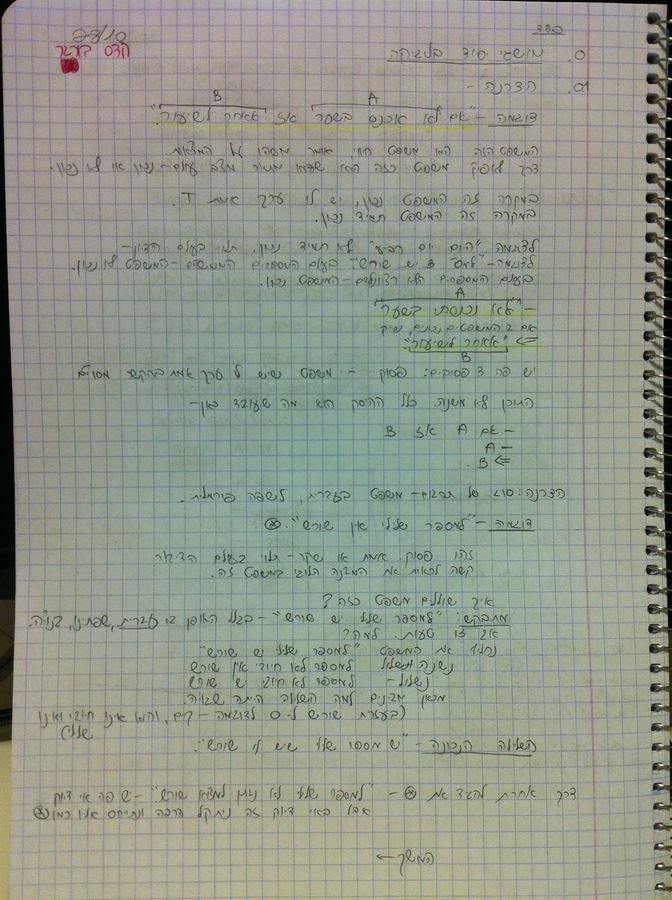 בס"ד
28/10
0. מושגי יסוד בלוגיקה
01. הצרנה -
B A
דוגמה - "אם לא אכנס בשער אז אאחר לשיעור".
המשפט הזה הוא משפט חיווי, אומר משהו על המציאות
דרך לאפיין משפט כזה הוא שהוא מתאר מצב עולם - נכון או לא נכון.
במקרה זה המשפט נכון, יש לו ערך אמת T.
במקרה זה המשפט תמיד נכון.
לדוגמה "היום יום רביעי" לא תמיד נכון. תלוי בעולם הדיון -
לדוגמה - "למס' 3 יש שורש" בעולם המספרים הממשיים - המשפט לא נכון.
בעולם המספרים הלא רציונלים - המשפט נכון.
A
- "לא נכנסתי בשער"
אם 2 המשפטים נכונים, נסיק
⇐ "אאחר לשיעור".
B
יש פה 3 פסוקים: פסוק - משפט שיש לו ערך אמת בהקשר מסוים
התוכן לא משנה. כלל ההיסק הוא מה שעובד כאן -
- אם A אז B
- A
⇐ B.
הצרנה: סוג של תרגום - משפט בעברית, לשפה פורמלית.
דוגמה - "למספר שלילי אין שורש". ⊗
זהו פסוק. אמת או שקר - תלוי בעולם הדיבור
קשה לראות את המבנה הלוגי במשפט זה.
איך שוללים משפט כזה?
מתבקש: "למספר שלילי יש שורש" - בגלל האופן בו עברית, שפתינו, בנויה.
אך זו טעות. למה?
נחליף את המשפט "למספר שלילי יש שורש"
נשנה למספר לא חיובי אין שורש
נשלול - למספר לא חיובי יש שורש
מכאן מבינים למה השלילה היתה שגויה.
(בעזרת שורש ל-0 לדוגמה - קיים, והוא אינו חיובי ואינו
שלילי)
השלילה הנכונה - "יש מספר שלילי שיש לו שורש".
דרך אחרת להגיד את ⊗ - "למספר שלילי לא ניתן למצוא שורש" - יש פה אי דיוק
אבל באי דיוק זה ניתקל הרבה ונתייחס אליו כמו ⊗
המשך ←